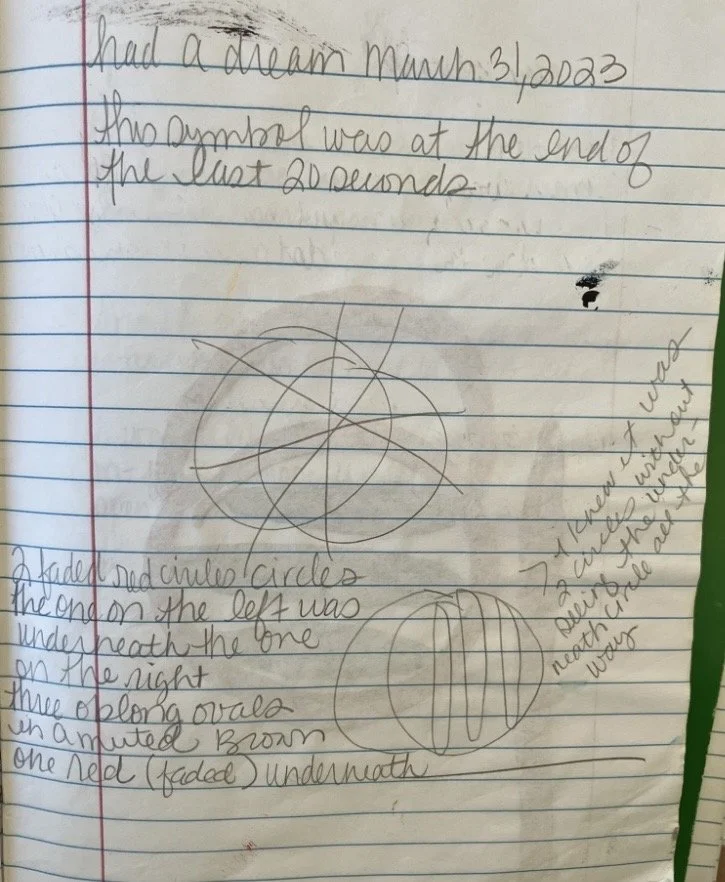 had a dream March 31, 2023
this symbol was at the end of
the last 20 seconds
I knew it was
2 circles without
seeing the under-
neath circle all the
way
2 faded red circles circles
the one on the left was
underneath the one
on the right
three oblong ovals
in a muted Brown
one red (faded) underneath